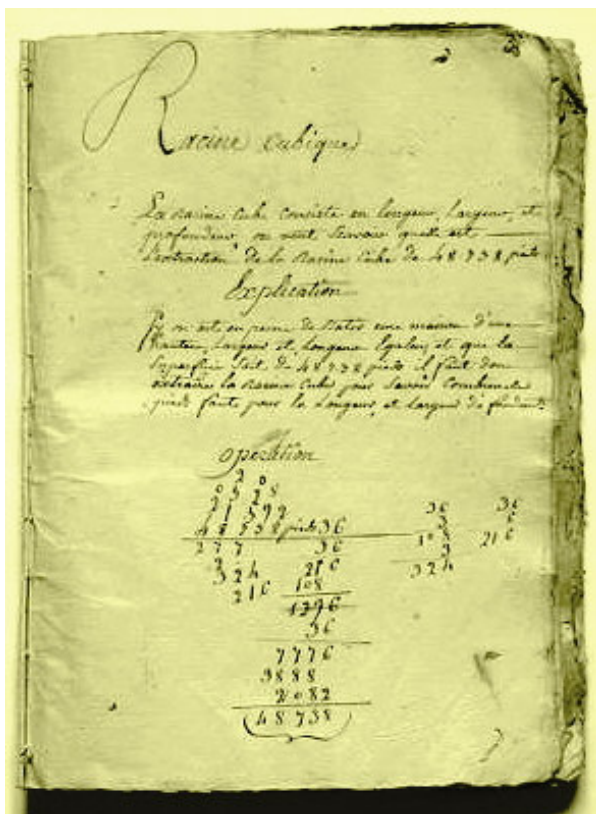 Racine Cubique
La Racine Cube consiste en longueur, largeur, et
profondeur, on veut savoir quelle est
l'extraction de la Racine Cube de 48738 pieds
Explication
on est en peine de Batir une maison d'une
hauteur, largeur et longueur Egales, et que la
Superficie Soit de 48738 pieds il faut donc
extraire la Racine Cube pour savoir Combien de
pieds faut pour la Longueur, et largeur de
Operation
48738 pieds 36
36 36
277 36
3 6
324 216 108 216
216 108 3
1296 324
36
7776
3888
2082
48738